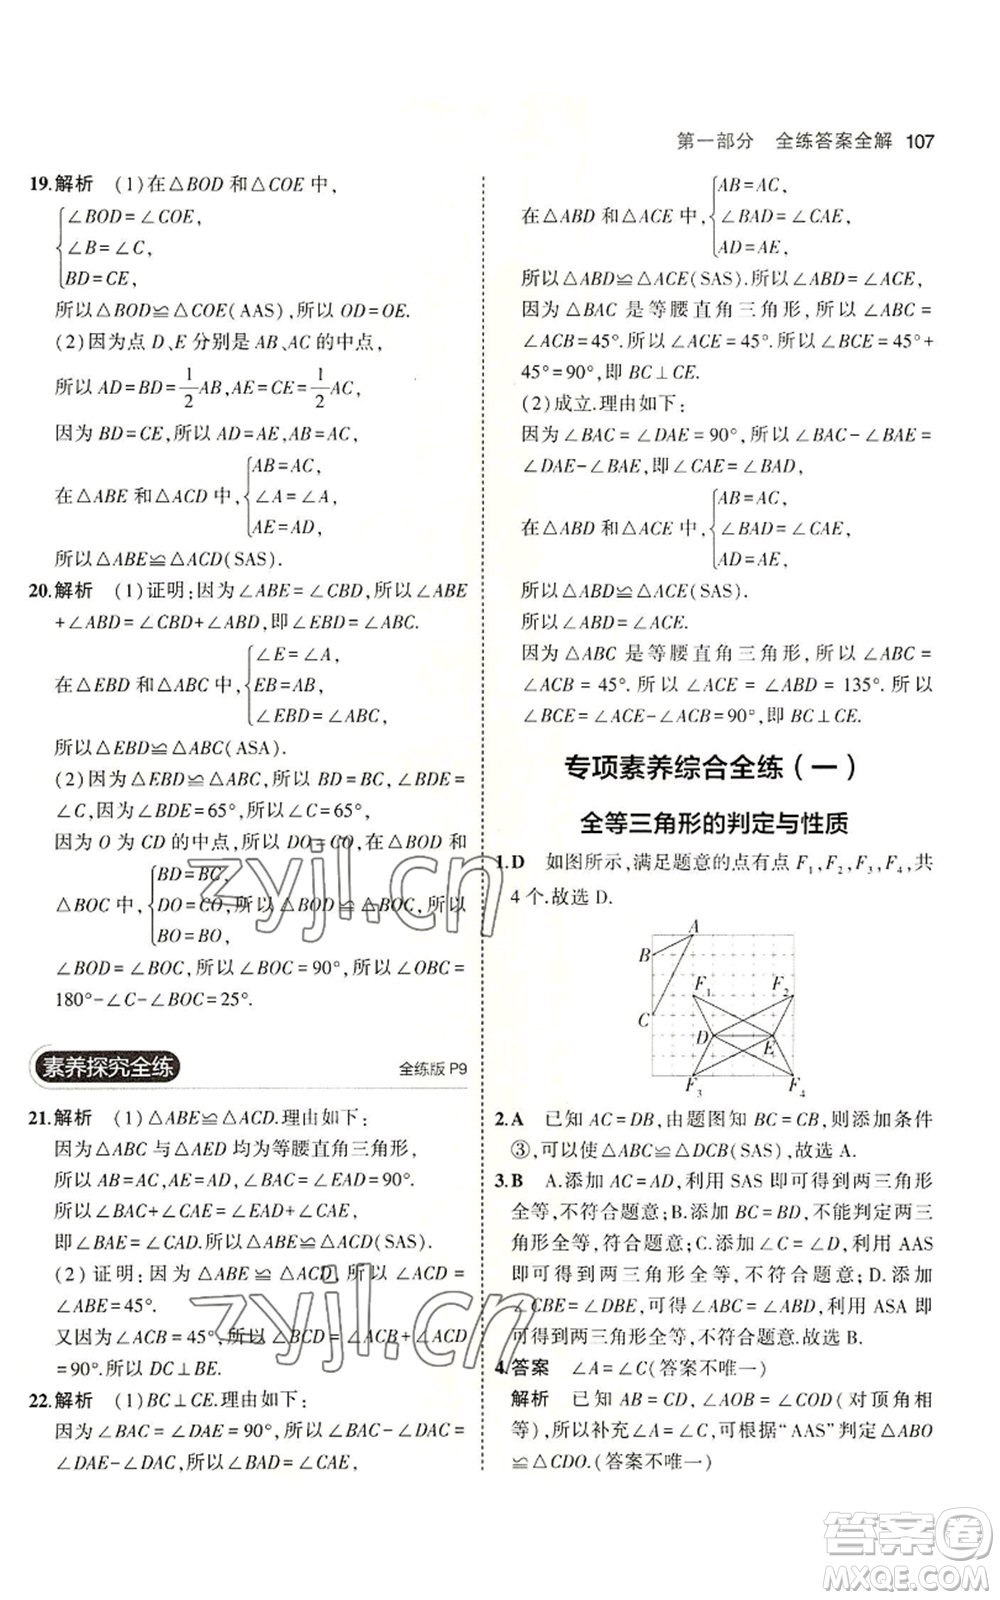 第一部分 全练答案全解 107
19.解析 (1)在△BOD 和△COE 中,
∠BOD=∠COE,
∠B=∠C,
BD=CE,
所以△BOD≌△COE(AAS),所以 OD=OE.
(2)因为点 D、E 分别是 AB、AC 的中点,
所以 AD=BD=1/2AB,AE=CE=1/2AC,
因为 BD=CE,所以 AD=AE,AB=AC,
在△ABE 和△ACD 中,
AB=AC,
∠A=∠A,
AE=AD,
所以△ABE≌△ACD(SAS).
20.解析 (1)证明:因为∠ABE=∠CBD,所以∠ABE
+∠ABD=∠CBD+∠ABD,即∠EBD=∠ABC.
在△EBD 和△ABC 中,
∠E=∠A,
EB=AB,
∠EBD=∠ABC,
所以△EBD≌△ABC(ASA).
(2)因为△EBD≌△ABC,所以 BD=BC,∠BDE=
∠C,因为∠BDE=65°,所以∠C=65°,
因为 O 为 CD 的中点,所以 DO=CO,在△BOD 和
△BOC 中,
BD=BC,
DO=CO,所以△BOD≌△BOC(SSS),所以
BO=BO,
∠BOD=∠BOC,所以∠BOC=90°,所以∠OBC=
180°-∠C-∠BOC=25°.
素养探究全练 全练版 P9
21.解析 (1)△ABE≌△ACD.理由如下:
因为△ABC 与△AED 均为等腰直角三角形,
所以 AB=AC,AE=AD,∠BAC=∠EAD=90°.
所以∠BAC+∠CAE=∠EAD+∠CAE,
即∠BAE=∠CAD.所以△ABE≌△ACD(SAS).
(2)证明:因为△ABE≌△ACD,所以∠ACD=
∠ABE=45°.
又因为∠ACB=45°,所以∠BCD=∠ACB+∠ACD
=90°.所以 DC⊥BE.
22.解析 (1)BC⊥CE.理由如下:
因为∠BAC=∠DAE=90°,所以∠BAC-∠DAC=
∠DAE-∠DAC,所以∠BAD=∠CAE,
在△ABD 和△ACE 中,
AB=AC,
∠BAD=∠CAE,
AD=AE,
所以△ABD≌△ACE(SAS).所以∠B=∠ACE.
因为△BAC 是等腰直角三角形,所以∠B=
∠ACB=45°.所以∠ACE=45°.所以∠BCE=45°+
45°=90°,即 BC⊥CE.
(2)成立.理由如下:
因为∠BAC=∠DAE=90°,所以∠BAC-∠BAE=
∠DAE-∠BAE,即∠CAE=∠BAD,
在△ABD 和△ACE 中,
AB=AC,
∠BAD=∠CAE,
AD=AE,
所以△ABD≌△ACE(SAS).
所以∠ABD=∠ACE.
因为△ABC 是等腰直角三角形,所以∠ABC=
∠ACB=45°.所以∠ACE=∠ABD=135°.所以
∠BCE=∠ACE-∠ACB=90°,即 BC⊥CE.
专项素养综合全练(一)
全等三角形的判定与性质
1.D 如图所示,满足题意的点有点 F₁,F₂,F₃,F₄,共
4 个.故选 D.
A
B
F₁ F₂
C
D E
F₃ F₄
2.A 已知 AC=DB,由题图知 BC=CB,则添加条件
③,可以使△ABC≌△DCB(SAS),故选 A.
3.B A.添加 AC=AD,利用 SAS 即可得到两三角形
全等,不符合题意;B.添加 BC=BD,不能判定两三
角形全等,符合题意;C.添加∠C=∠D,利用 AAS
即可得到两三角形全等,不符合题意;D.添加
∠CBE=∠DBE,可得∠ABC=∠ABD,利用 ASA 即
可得到两三角形全等,不符合题意.故选 B.
4.答案 ∠A=∠C(答案不唯一)
解析 已知 AB=CD,∠AOB=∠COD(对顶角相
等),所以补充∠A=∠C,可根据“AAS”判定△ABO
≌△CDO.(答案不唯一)
zyjl.cn
zyjl.cn
答案圈
MXQE.COM